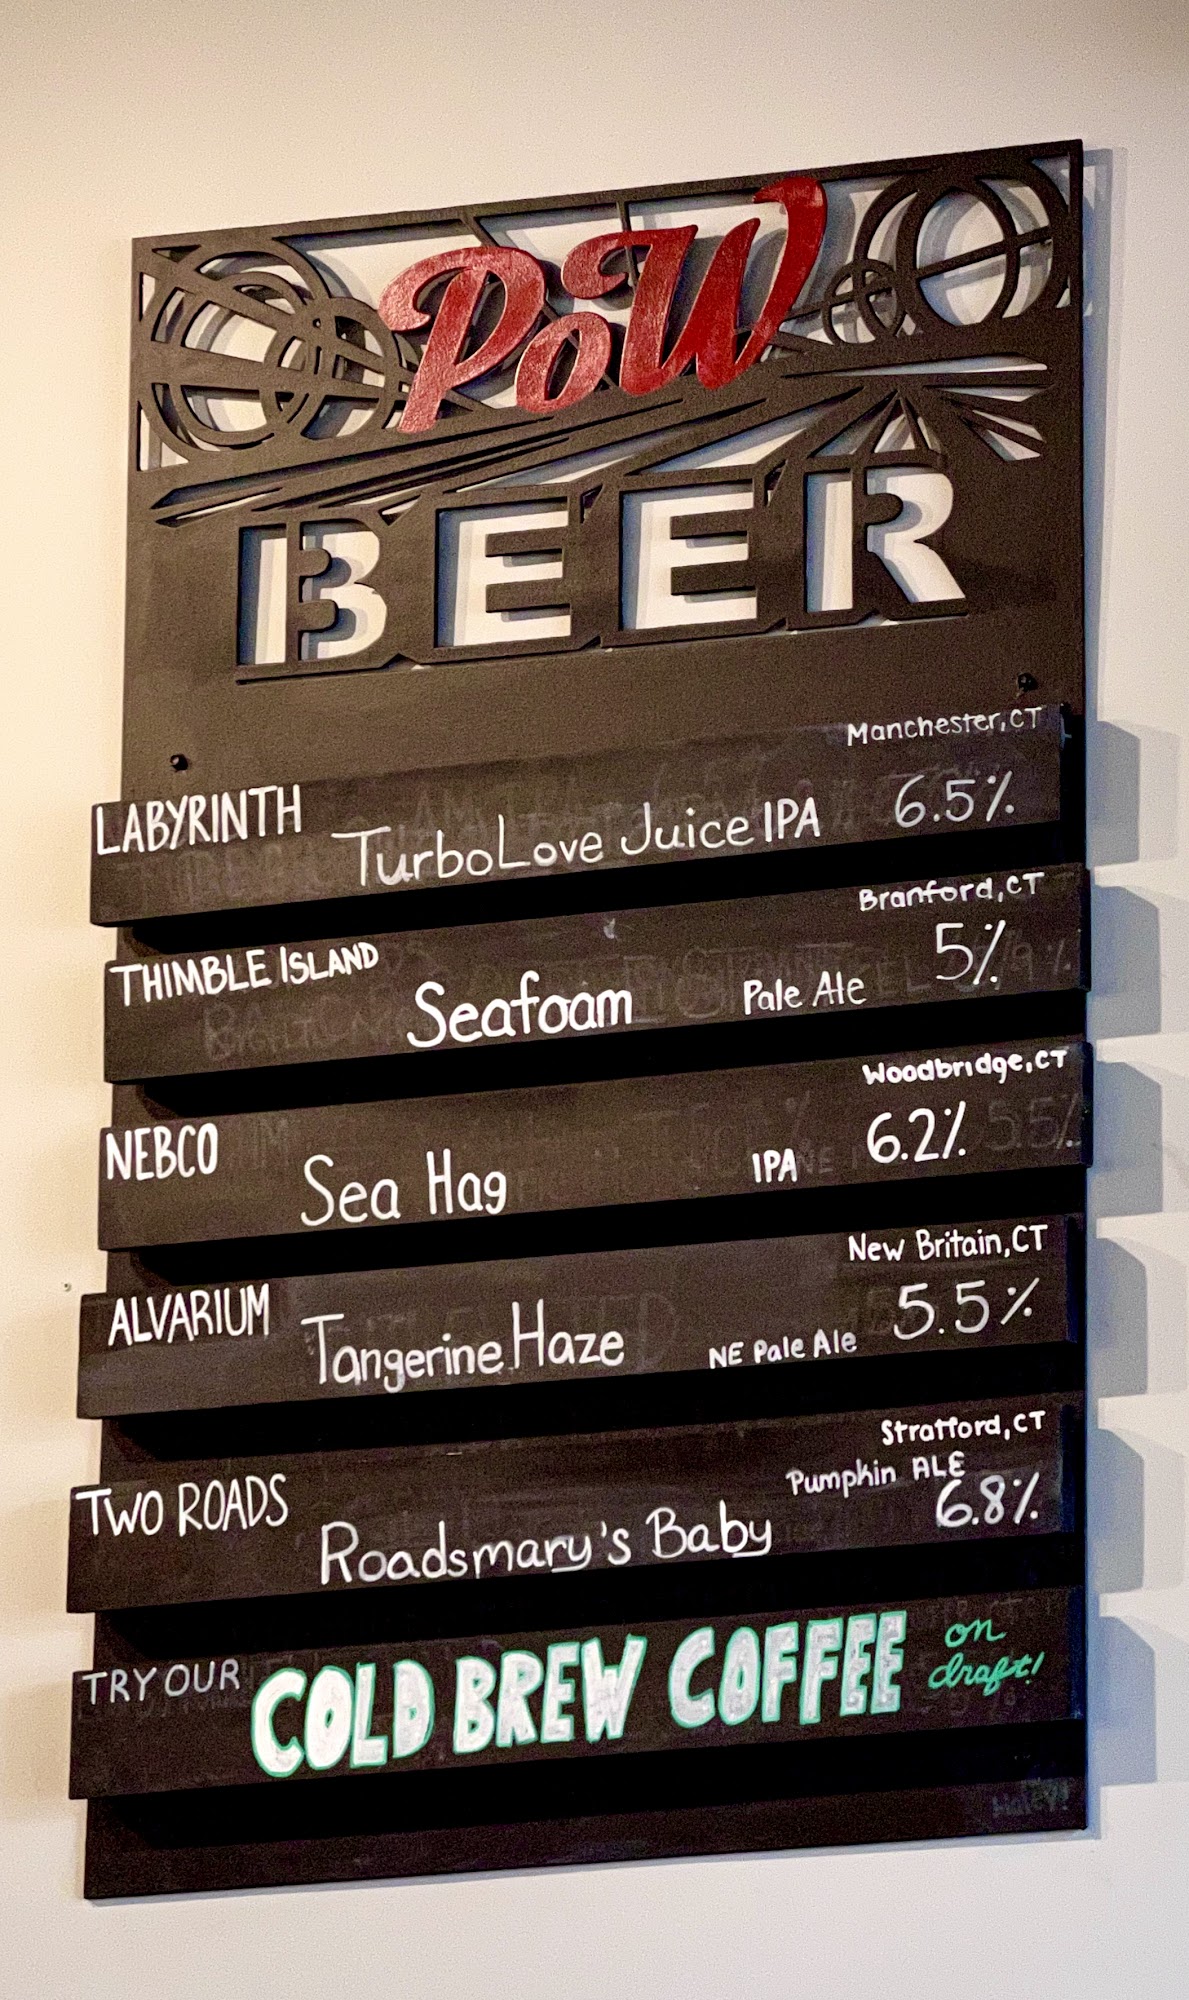 PoW
BEER
Manchester, CT
LABYRINTH TurboLove Juice IPA 6.5%
Branford, CT
THIMBLE ISLAND Seafoam Pale Ale 5%
Woodbridge, CT
NEBCO Sea Hag IPA 6.2%
New Britain, CT
ALVARIUM Tangerine Haze NE Pale Ale 5.5%
Stratford, CT
Pumpkin ALE
TWO ROADS Roadsmary's Baby 6.8%
TRY OUR COLD BREW COFFEE on
draft!